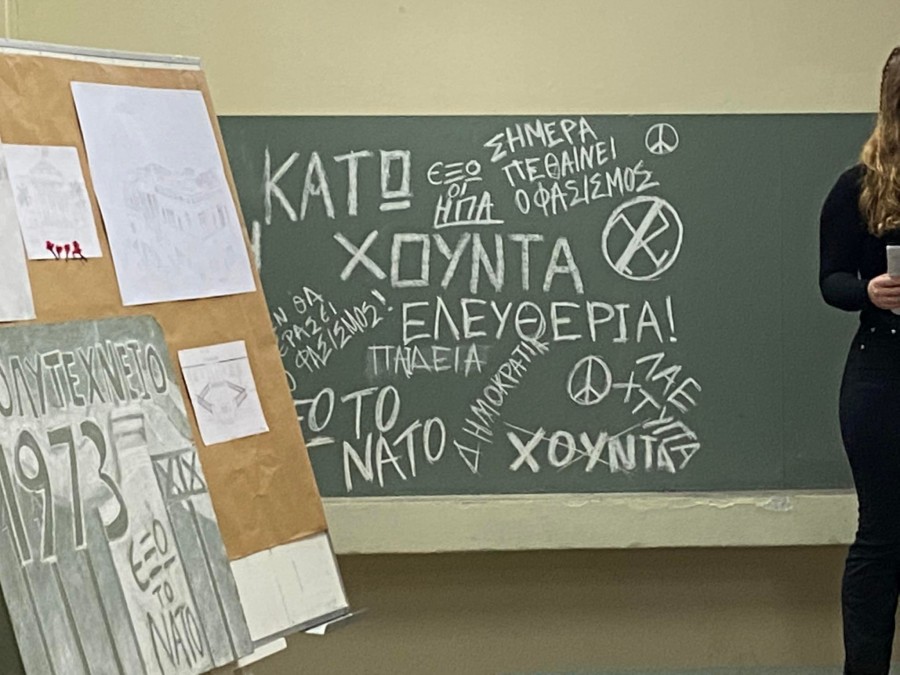 ΚΑΤΩ
ΕΞΩ
ΟΙ
ΗΠΑ
ΣΗΜΕΡΑ
ΠΕΘΑΙΝΕΙ
Ο ΦΑΣΙΣΜΟΣ
ΧΟΥΝΤΑ
ΕΝ ΘΑ
ΕΡΑΣΕΙ
Ο ΦΑΣΙΣΜΟΣ!
ΕΛΕΥΘΕΡΙΑ!
ΠΑΙΔΕΙΑ
ΔΗΜΟΚΡΑΤΙΑ
ΞΩ ΤΟ
ΝΑΤΟ
ΧΟΥΝΤΑ
ΟΛΥΤΕΧΝΕΙΟ
1973
ΕΞΩ
ΤΟ
ΝΑΤΟ